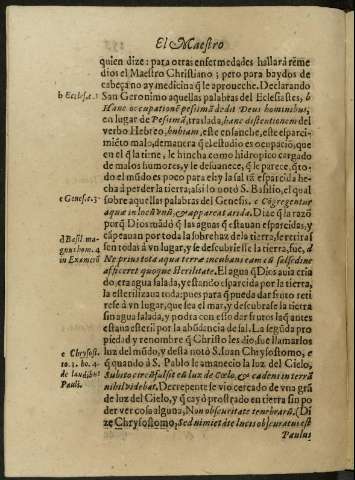 El Maestro
quien dize: para otras enfermedades hallarà reme
dios el Maestro Christiano; pero para baydos de
cabeça no ay medicina q̃ le aprouehe. Declarando
b Ecclesæ. 1
San Geronimo aquellas palabras del Eclesiastes, b
Hanc occupationẽ pessimã dedit Deus hominibus,
en lugar de Pessimã, traslada, hanc distentionem del
verbo Hebreo, hubiam, este ensanche, este esparci-
miẽto malo, demanera q̃ el estudio es ocupaciõ, que
en el q̃ la tiene, le hincha como hidropico cargado
de malos humores, y le desuanece, q̃ le parece, q̃ to-
do el mũdo es poco para el: y la sal tã esparcida he-
cha à perder la tierra; assi lo notò S. Basilio, el qual
e Genes. 1.
sobre aquellas palabras del Genesis, e Cõgregentur
aquæ in locũ vnũ, & appareat arida. Dize q̃ la razõ
d Basil. ma-
gnus hom. 4
in Examerõ
porq̃ Dios mãdò q̃ las aguas q̃ estauan esparcidas, y
cãpeauan por toda la sobrehaz de la tierra, se retiras
sen todas à vn lugar, y se descubriesse la tierra, fue, d
Ne prius tota aqua terræ incubans eam cũ salsedine
afficeret quoque sterilitate. El agua q̃ Dios auia cria
do, era agua salada, y estando esparcida por la tierra,
la esterilizaua toda: pues para q̃ pueda dar fruto reti
rese à vn lugar, que sea el mar, y descubrase la tierra
sin agua salada, y podra con esso dar frutos la q̃ antes
estaua esteril por la abũdancia de sal. La segũda pro
piedad y renombre q̃ Christo les dio, fue llamarlos
e Chrysost.
to. 3. ho. 4.
de laudibus
Pauli.
luz del mũdo, y desta notò S. Iuan Chrysostomo, e
q̃ quando à S. Pablo le amanecio la luz del Cielo,
Subito circũfulsit eũ lux de Cœlo, & cadens in terrã
nihil videbat. Derepente se vio cercado de vna grã
de luz del Cielo, y q̃ cayò prostrado en tierra sin po
der ver cosa alguna, Non obscuritate tenebrarũ. (Di
ze Chrysostomo, sed nimietate lucis obscuratus est
Paulus